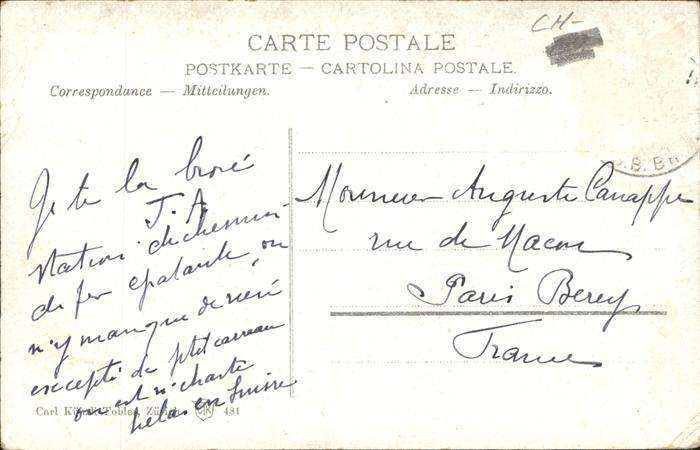 CH-
CARTE POSTALE
POSTKARTE — CARTOLINA POSTALE.
Correspondance — Mitteilungen.
Adresse — Indirizzo.
.B.B
Je te la
J. A.
Station de chemin
de fer épatante, on
n'y manque de rien
excepté de ptit carreau
on est
helas en Suisse
Monsieur Auguste Canappe
rue de Macon
Paris Bercy
France
Carl Künzli-Tobler, Zürich 481